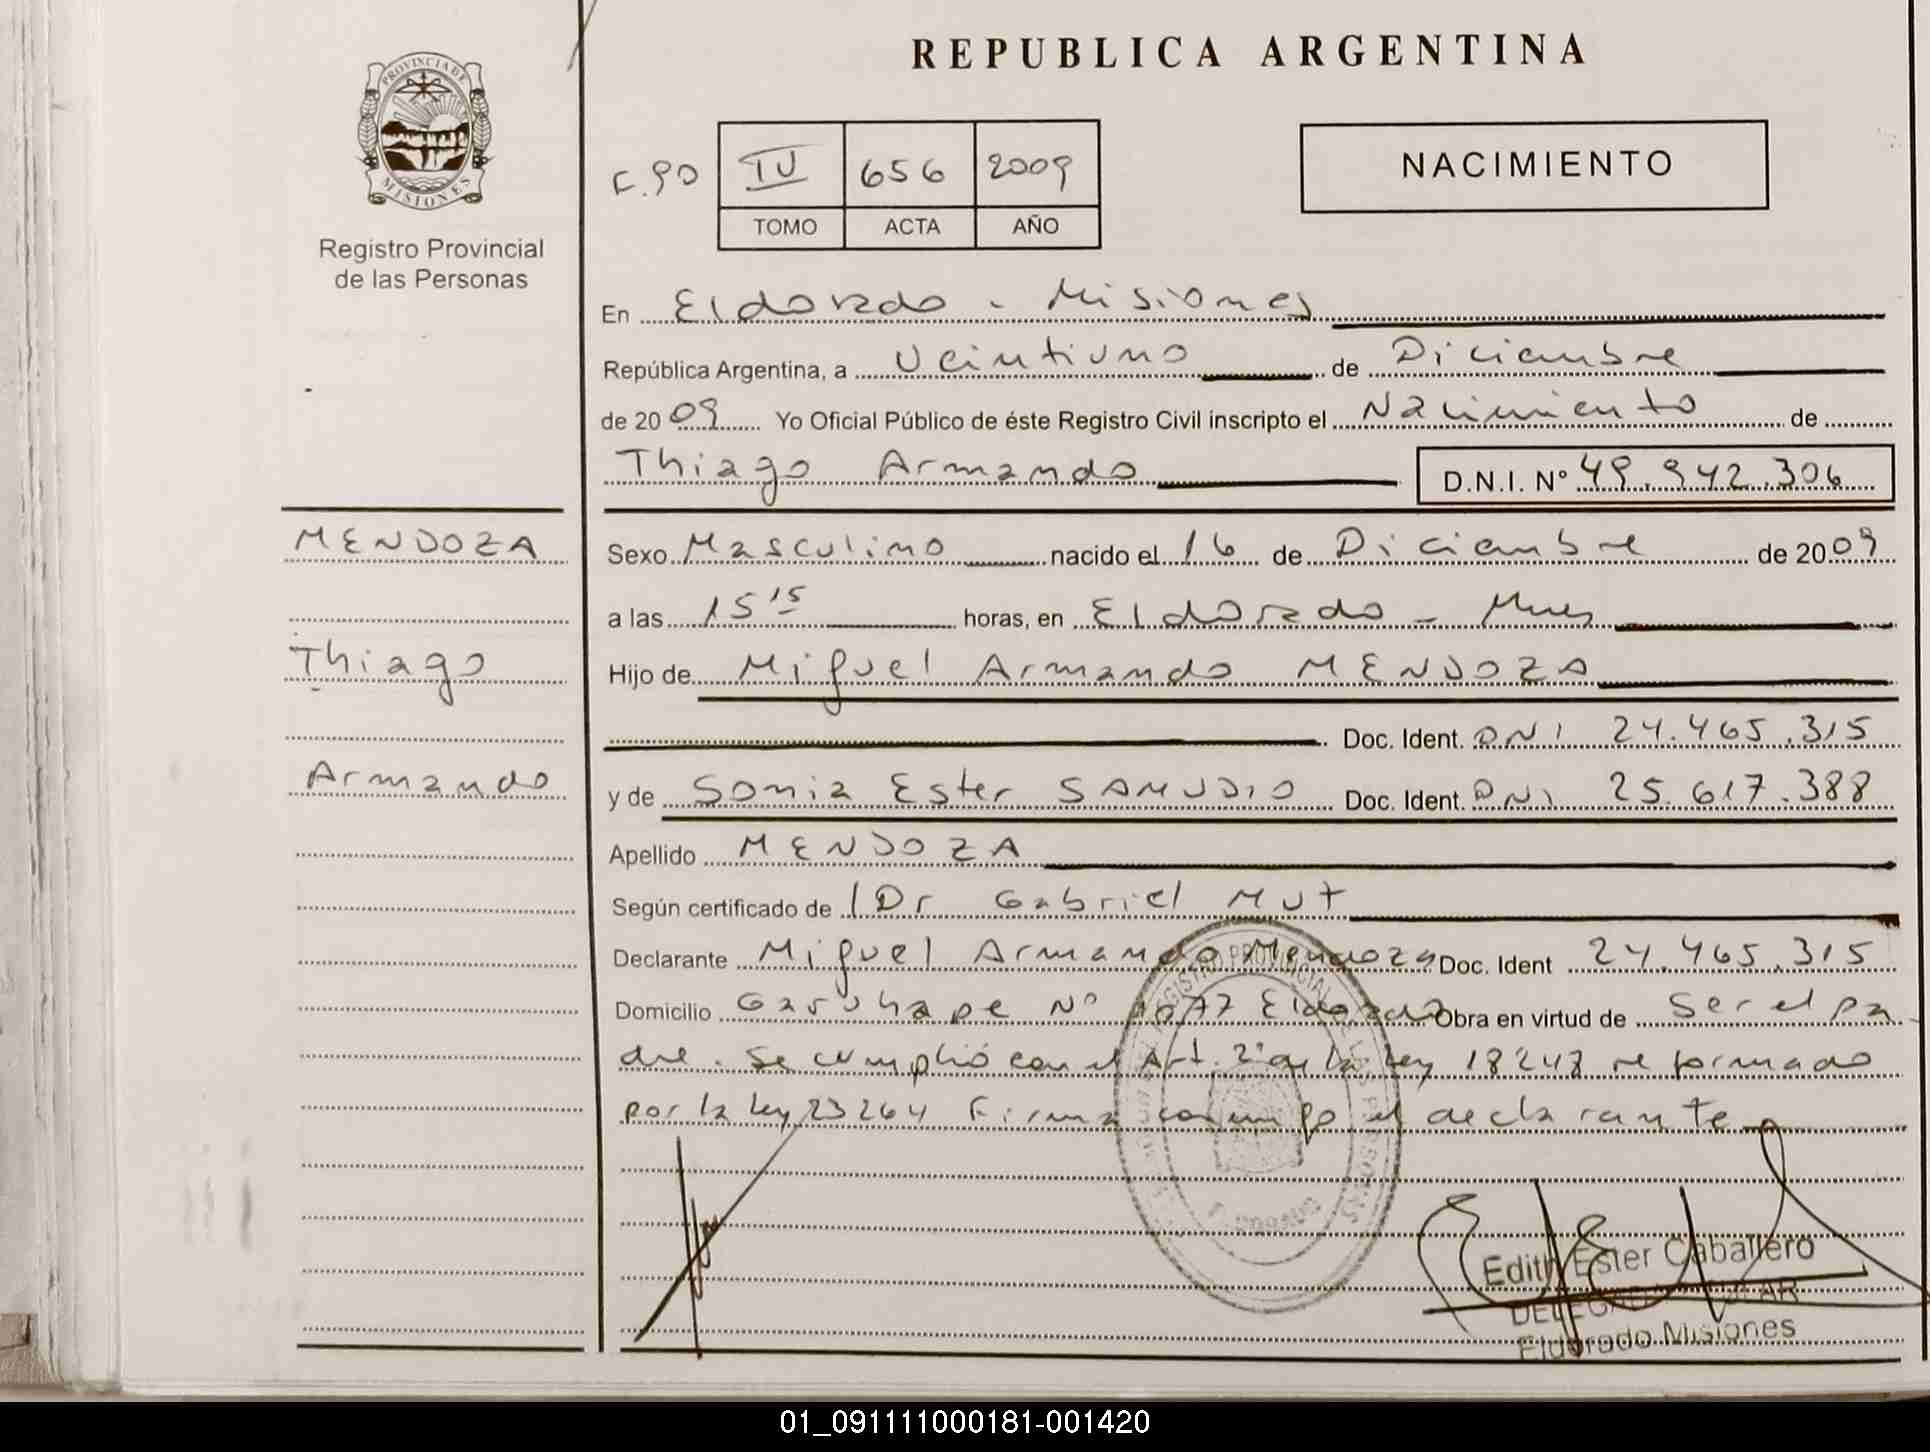 PROVINCIA DE
MISIONES
Registro Provincial
de las Personas
MENDOZA
Thiago
Armando
REPUBLICA ARGENTINA
F.90 IV 656 2009
TOMO ACTA AÑO
NACIMIENTO
En Eldorado - Misiones
República Argentina, a Veintiuno de Diciembre
de 2009 Yo Oficial Público de éste Registro Civil inscripto el Nacimiento de
Thiago Armando D.N.I. Nº 49.942.306
Sexo Masculino nacido el 16 de Diciembre de 2009
a las 15 15 horas, en Eldorado - Mnes
Hijo de Miguel Armando MENDOZA
Doc. Ident. DNI 24.465.315
y de Sonia Ester SAMUDIO Doc. Ident. DNI 25.617.388
Apellido MENDOZA
Según certificado de Dr Gabriel Mut
Declarante Miguel Armando Mendoza Doc. Ident 24.465.315
Domicilio Garuhape Nº Eldorado Obra en virtud de Ser el pa
dre. Se cumplió con el Art. 2º de la Ley 18248 reformado
por la Ley 23264 Firma conmigo el declarante
REGISTRO PROVINCIAL DE LAS PERSONAS
ELDORADO
Edith Ester Caballero
Eldorado Misiones
01_091111000181-001420